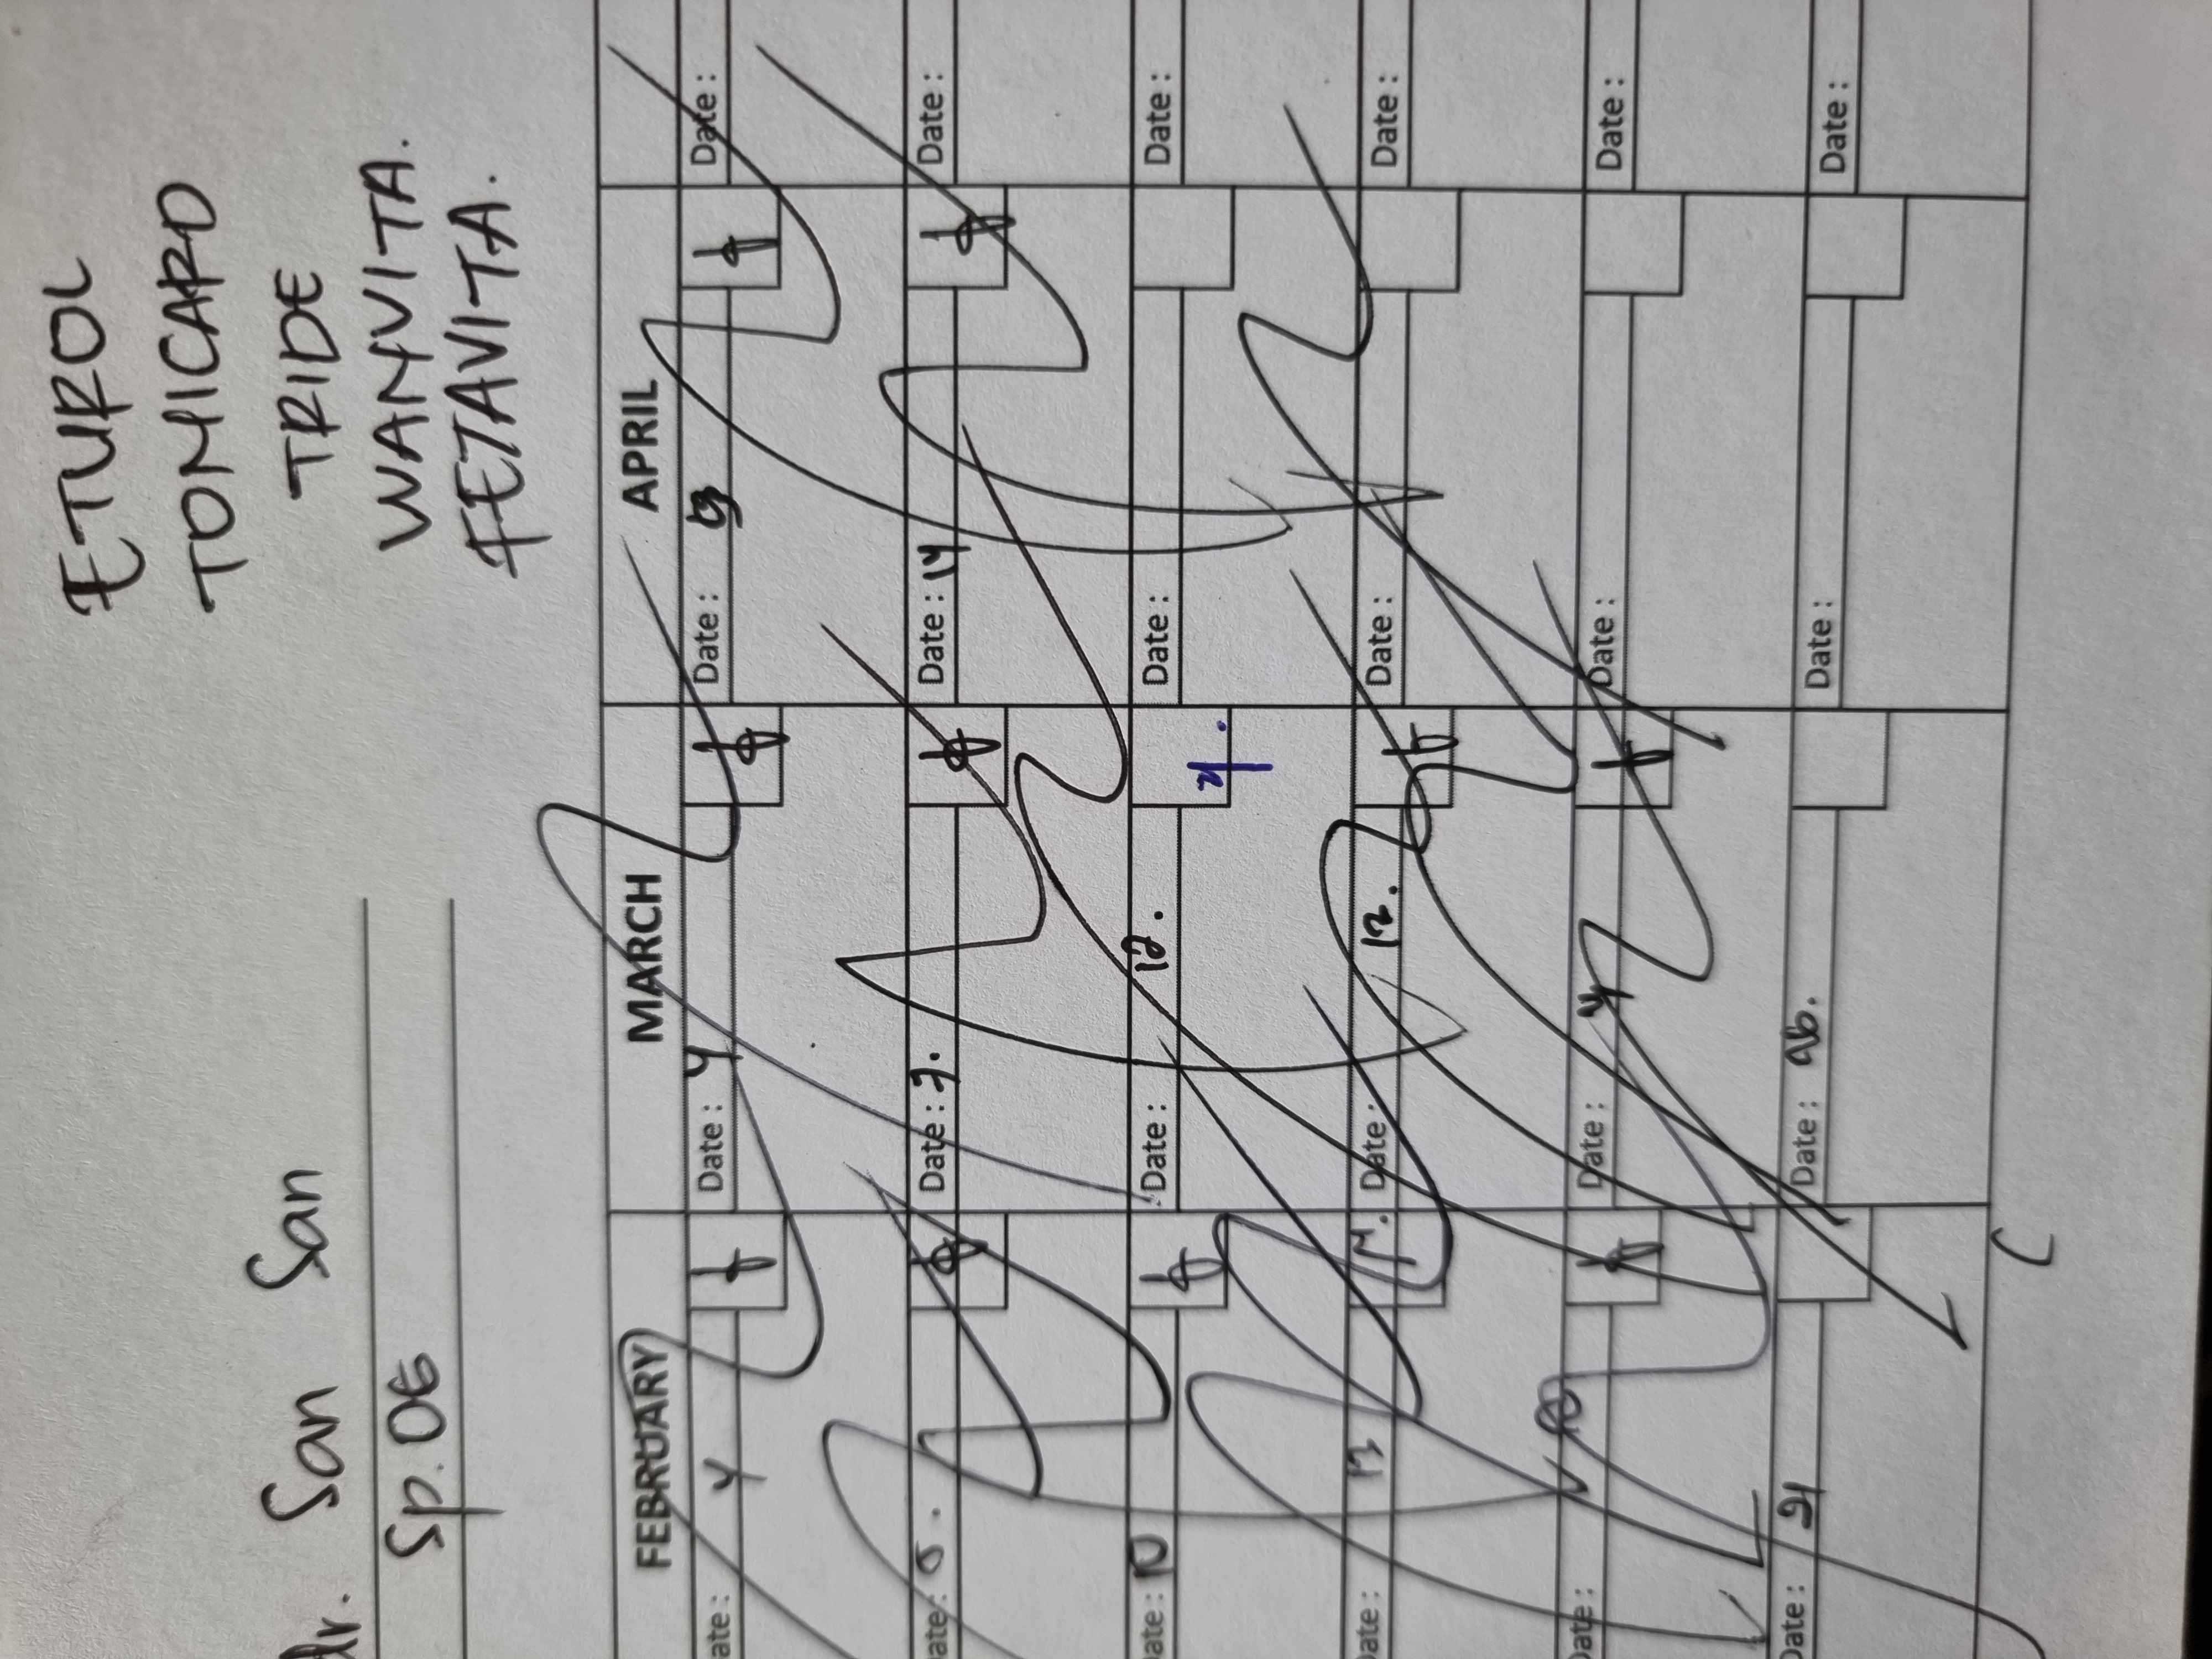 ETUROL
TONICARD
TRIDE
WANVITA.
FETAVITA.
dr. San San
Sp. OG
FEBRUARY MARCH APRIL
Date: 4 Date: 4 Date: 9 Date:
Date: 5. Date: 7. Date: 14 Date:
Date: 10 Date: 12. Date: Date:
Date: 13 Date: 12. Date: Date:
Date: Date: Date: Date:
Date: 21 Date: 26. Date: Date: